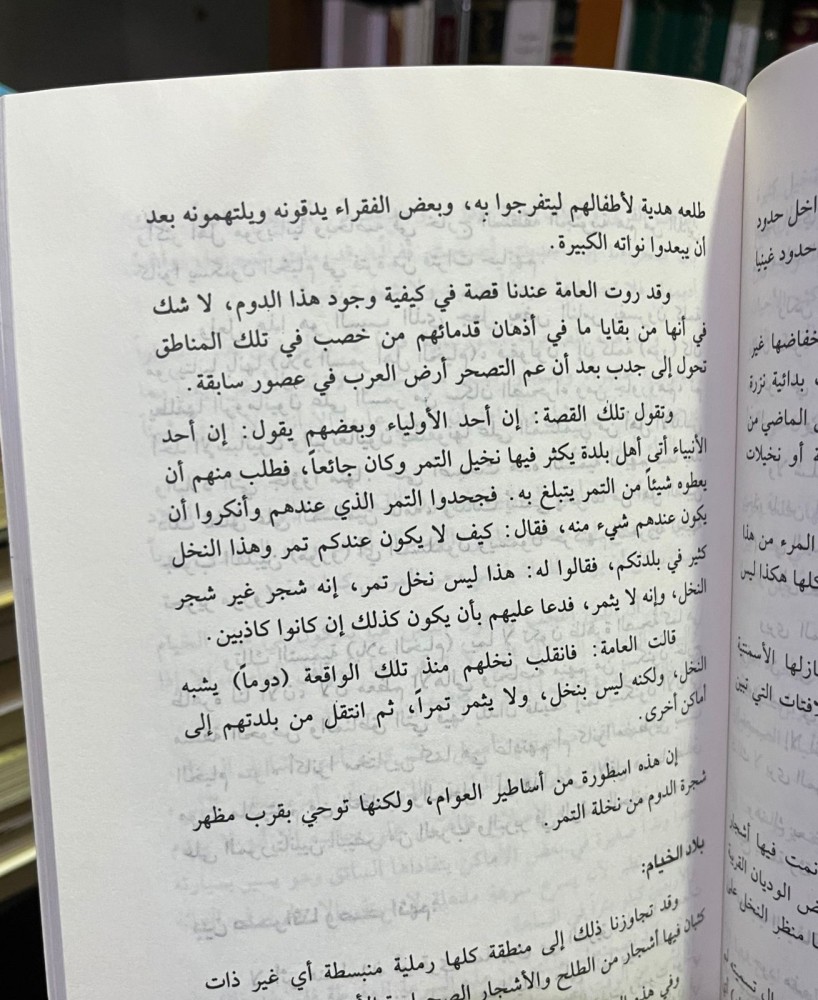 طلعه هدية لأطفالهم ليتفرجوا به، وبعض الفقراء يدقونه ويلتهمونه بعد
أن يبعدوا نواته الكبيرة.
وقد روت العامة عندنا قصة في كيفية وجود هذا الدوم، لا شك
في أنها من بقايا ما في أذهان قدمائهم من خصب في تلك المناطق
تحول إلى جدب بعد أن عم التصحر أرض العرب في عصور سابقة.
وتقول تلك القصة: إن أحد الأولياء وبعضهم يقول: إن أحد
الأنبياء أتى أهل بلدة يكثر فيها نخيل التمر وكان جائعاً، فطلب منهم أن
يعطوه شيئاً من التمر يتبلغ به. فجحدوا التمر الذي عندهم وأنكروا أن
يكون عندهم شيء منه، فقال: كيف لا يكون عندكم تمر وهذا النخل
كثير في بلدتكم، فقالوا له: هذا ليس نخل تمر، إنه شجر غير شجر
النخل، وإنه لا يثمر، فدعا عليهم بأن يكون كذلك إن كانوا كاذبين.
قالت العامة: فانقلب نخلهم منذ تلك الواقعة (دوماً) يشبه
النخل، ولكنه ليس بنخل، ولا يثمر تمراً، ثم انتقل من بلدتهم إلى
أماكن أخرى.
إن هذه اسطورة من أساطير العوام، ولكنها توحي بقرب مظهر
شجرة الدوم من نخلة التمر.
بلاد الخيام:
وقد تجاوزنا ذلك إلى منطقة كلها رملية منبسطة أي غير ذات
كثبان فيها أشجار من الطلح والأشجار
وفي هذه
اخل حدود
حدود غينيا
خفاضها غير
بدائية نزرة
الماضي من
أو نخيلات
المرء من هذا
كلها هكذا ليس
ازلها الأسمنتية
فتات التي تبين
نمت فيها أشجار
ض الوديان القريبة
منظر النخل على